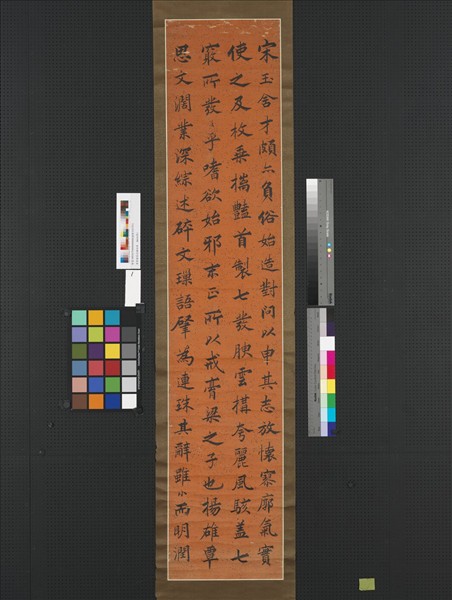 宋玉含才頗亦負俗始造對問以申其志放懷寥廓氣實
使之及枚乘摛豔首製七發腴雲搆夸麗風駭蓋七
竅所發〻乎嗜欲始邪末正所以戒膏梁之子也揚雄覃
思文濶業深綜述碎文璅語肇為連珠其辭雖小而明潤